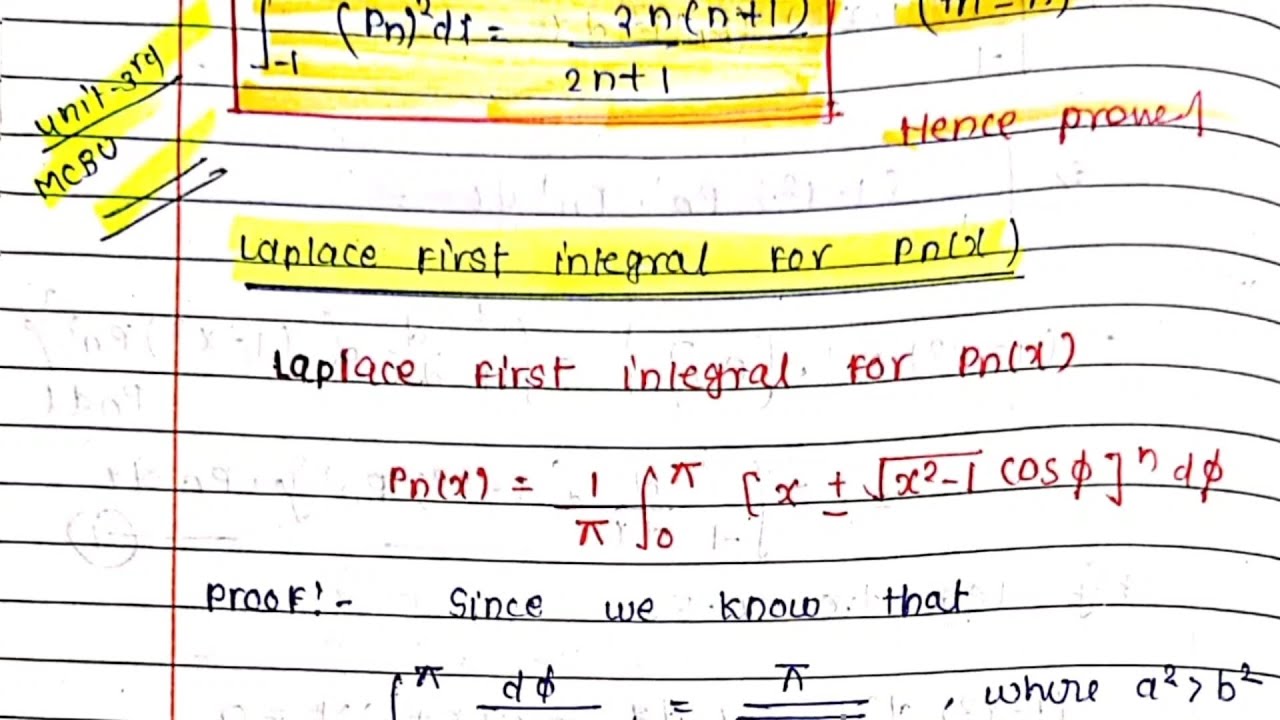 ∫₋₁ (Pn)² dt = 2n(n+1) / 2n+1
Hence proved
unit-3rd
MCBU
Laplace First integral for Pn(x)
Laplace First integral for Pn(x)
Pn(x) = 1/π ∫₀^π [x ± √x²-1 cosϕ]ⁿ dϕ
Proof:- Since we know that
∫^π dϕ = π , where a² > b²